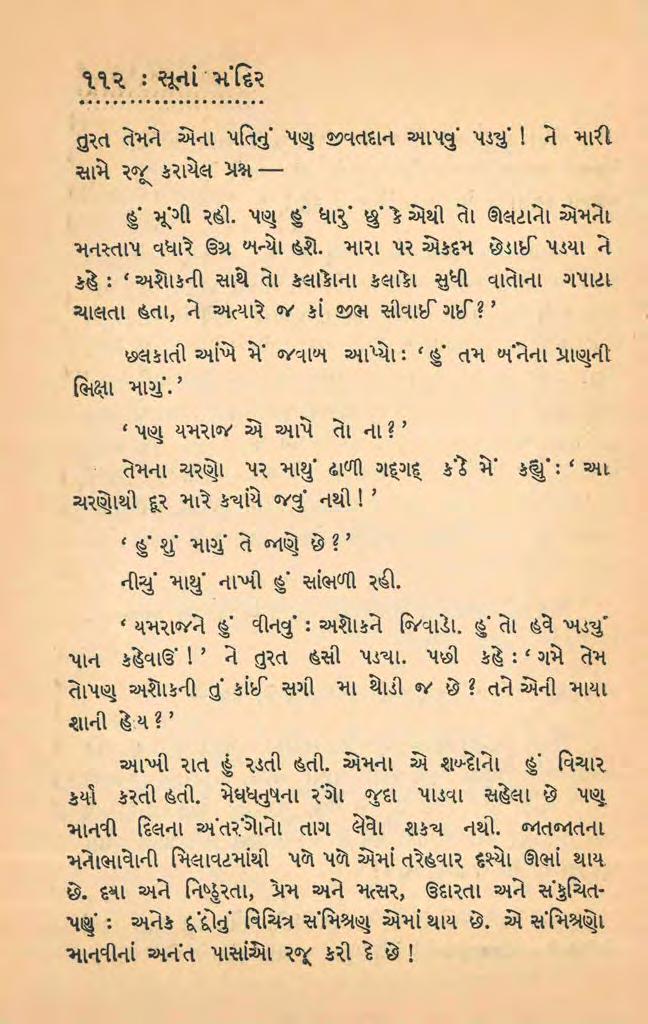 ૧૧૨ : સૂનાં મંદિર
તુરત તેમને એના પતિનું પણ જીવતદાન આપવું પડ્યું ! ને મારી
સામે રજૂ કરાયેલ પ્રશ્ન —
હું મૂંગી રહી. પણ હું ધારું છું કે એથી તો ઊલટાનો એમનો
મનસ્તાપ વધારે ઉગ્ર બન્યો હશે. મારા પર એકદમ છેડાઈ પડયા ને
કહે : ‘ અશોકની સાથે તો કલાકોના કલાકો સુધી વાતોના ગપાટા
ચાલતા હતા, ને અત્યારે જ કાં જીભ સીવાઈ ગઈ ? ’
છલકાતી આંખે મેં જવાબ આપ્યો : ‘ હું તમ બંનેના પ્રાણની
ભિક્ષા માગું. ’
‘ પણ યમરાજ એ આપે તો ના ? ’
તેમના ચરણો પર માથું ઢાળી ગદ્ગદ્ કંઠે મેં કહ્યું : ‘ આ
ચરણોથી દૂર મારે કયાંયે જવું નથી ! ’
‘ હું શું માગું તે જાણે છે ? ’
નીચું માથું નાખી હું સાંભળી રહી.
‘ યમરાજને હું વીનવું : અશોકને જિવાડો. હું તો હવે ખડ્યું
પાન કહેવાઉં ! ’ ને તુરત હસી પડયા. પછી કહે : ‘ ગમે તેમ
તોપણ અશોકની તું કાંઈ સગી મા થોડી જ છે ? તને એની માયા
શાની હોય ? ’
આખી રાત હું રડતી હતી. એમના એ શબ્દોનો હું વિચાર
કર્યા કરતી હતી. મેઘધનુષના રંગો જુદા પાડવા સહેલા છે પણ
માનવી દિલના અંતરંગોનો તાગ લેવો શકય નથી. જાતજાતના
મનોભાવોની મિલાવટમાંથી પળે પળે એમાં તરેહવાર દૃશ્યો ઊભાં થાય
છે. દયા અને નિષ્ઠુરતા, પ્રેમ અને મત્સર, ઉદારતા અને સંકુચિત-
પણું : અનેક દ્વંદ્વોનું વિચિત્ર સંમિશ્રણ એમાં થાય છે. એ સંમિશ્રણો
માનવીનાં અનંત પાસાંઓ રજૂ કરી દે છે !